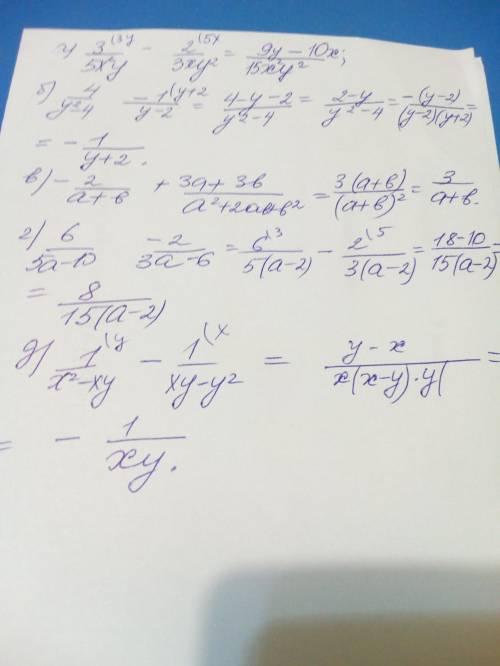 а) 3/5x²y (3y - 2/3xy² (5x = 9y - 10x/15x²y²;
б) 4/y²-4 - 1/y-2 (y+2 = 4-y-2/y²-4 = 2-y/y²-4 = -(y-2)/(y-2)(y+2) =
= - 1/y+2.
в) - 2/a+в + 3a+3в/a²+2aв+в² = 3(a+в)/(a+в)² = 3/a+в.
г) 6/5a-10 - 2/3a-6 = 6\3/5(a-2) - 2\5/3(a-2) = 18-10/15(a-2) =
= 8/15(a-2)
д) 1/x²-xy (y - 1/xy-y² (x = y-x/x(x-y)·y( =
= - 1/xy.